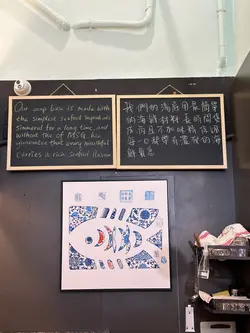 Our soup base is made with
the simplest seafood ingredients
simmered for a long time, and
without the use of MSG. We
guarantee that every mouthful
carries a rich seafood flavor
我們的湯底用最簡單
的海鮮材料長時間熬
而且不加味精
每一口都帶有濃郁的海
鮮氣息